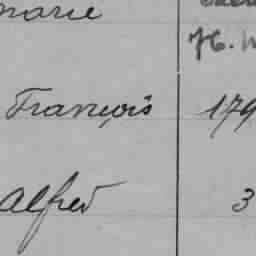 marie
H.
François 179
Alfred 3